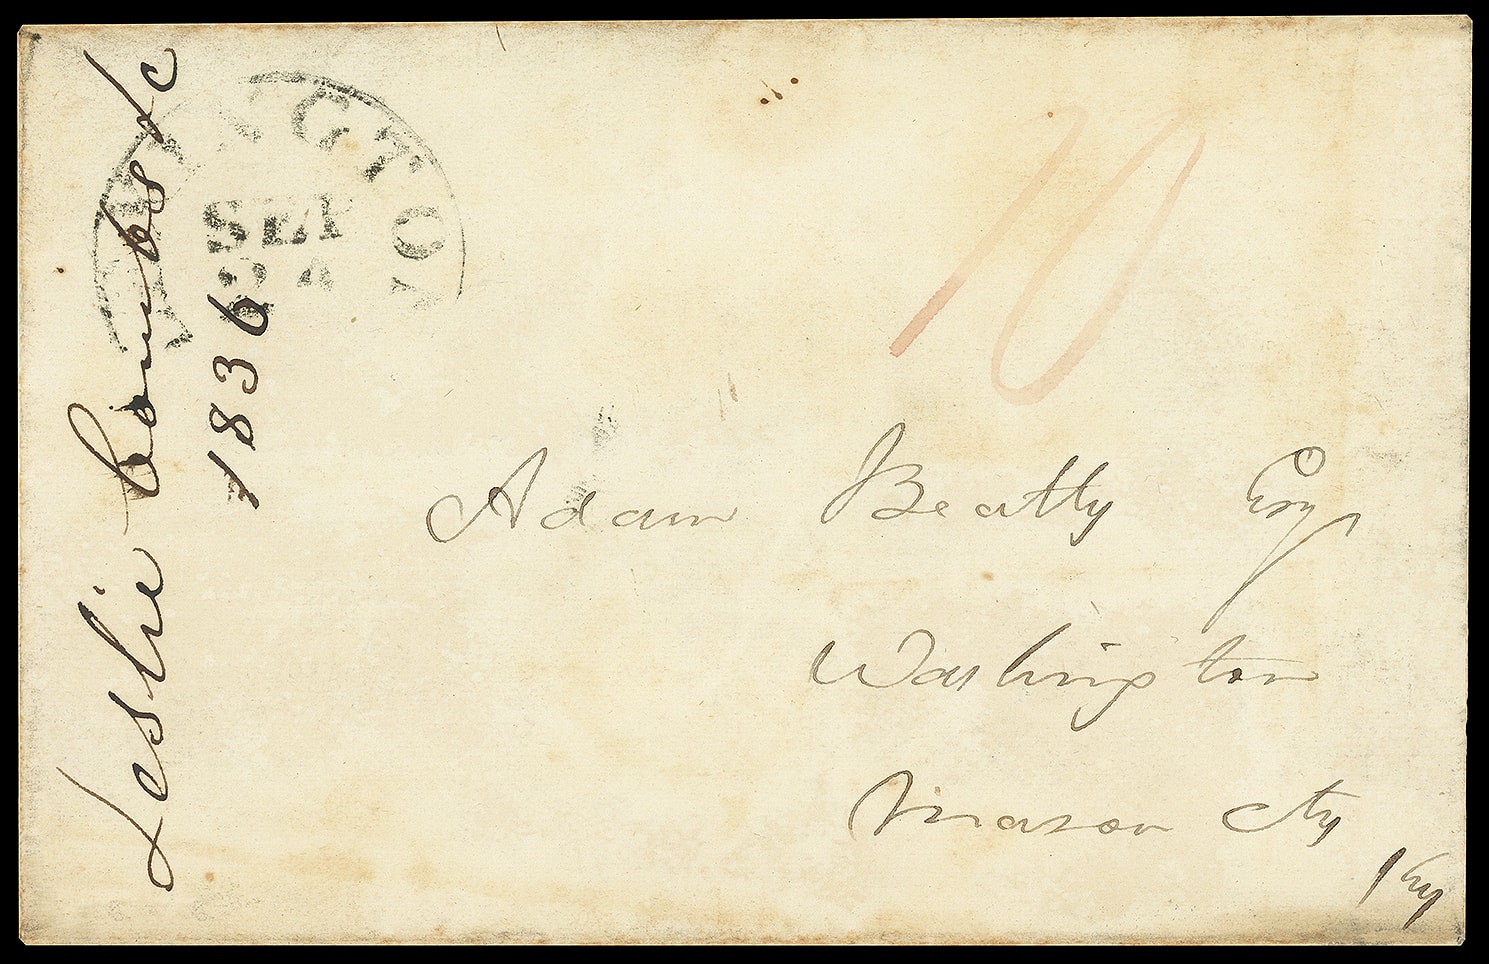 Leslie Combs &c
1836
LEXINGTON KY
SEP
24
10
Adam Beatty Esq.
Washington
Mason Cty
Ky